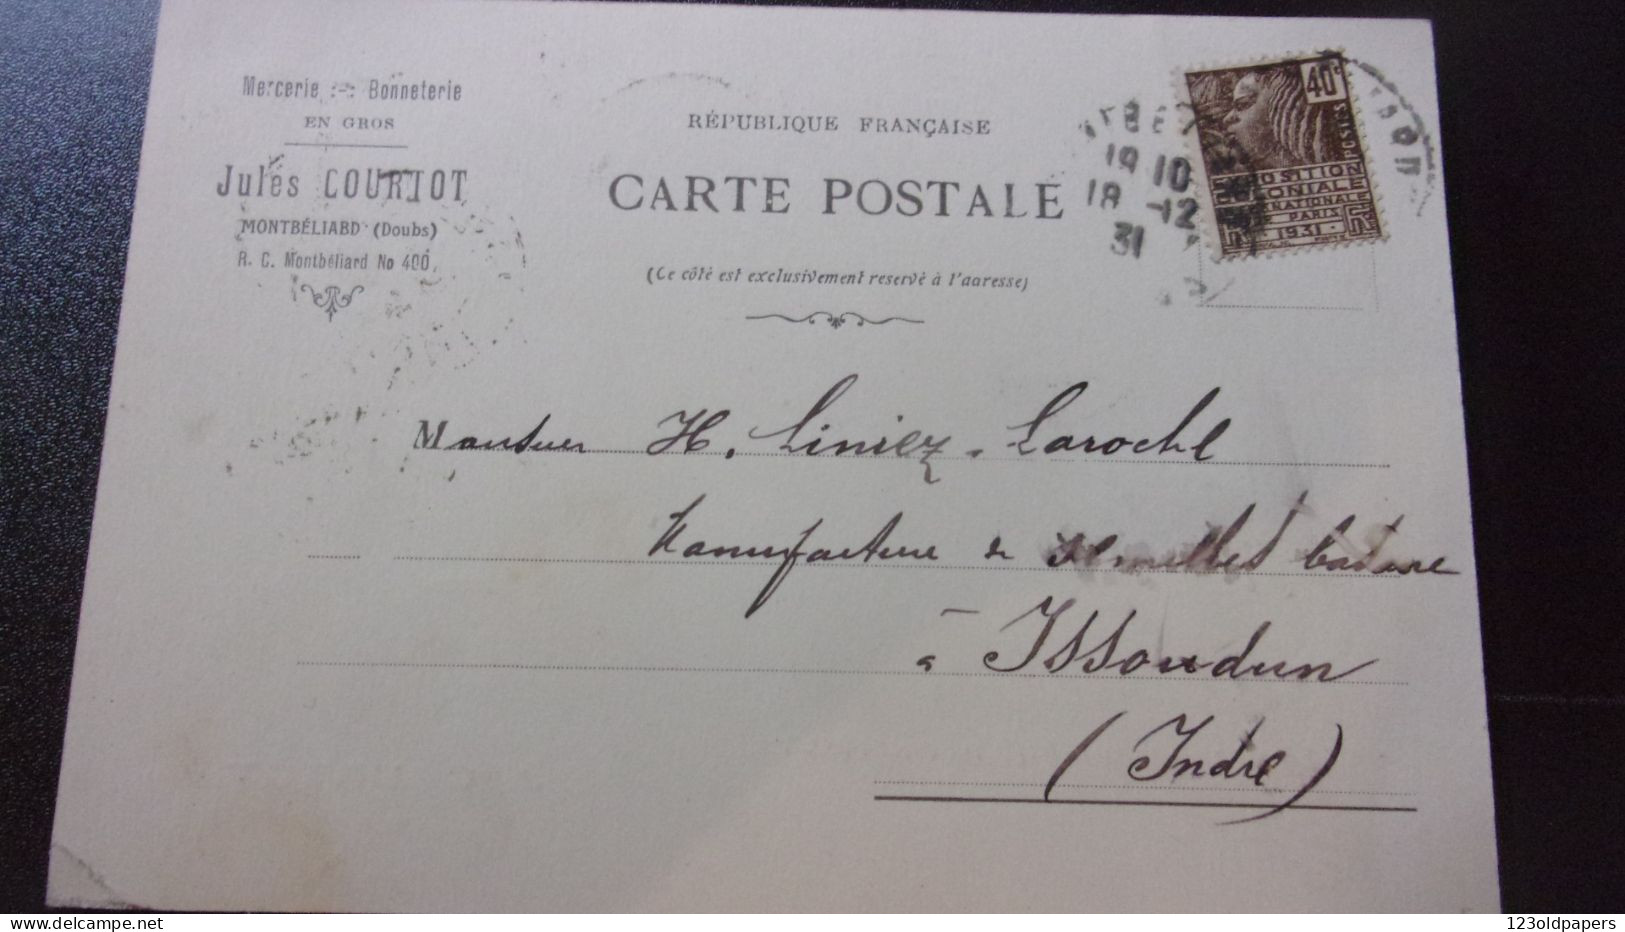 Mercerie :-: Bonneterie
EN GROS
Jules COURTOT
MONTBÉLIARD (Doubs)
R. C. Montbéliard No 400
RÉPUBLIQUE FRANÇAISE
CARTE POSTALE
(Ce côté est exclusivement reservé à l'adresse)
19 10
18 -12
31
40c
POSTES
EXPOSITION
COLONIALE
INTERNATIONALE
PARIS
1931
RF
Monsieur H. Liniez-Laroche
Manufacture de
à Issoudun
(Indre)
123oldpapers